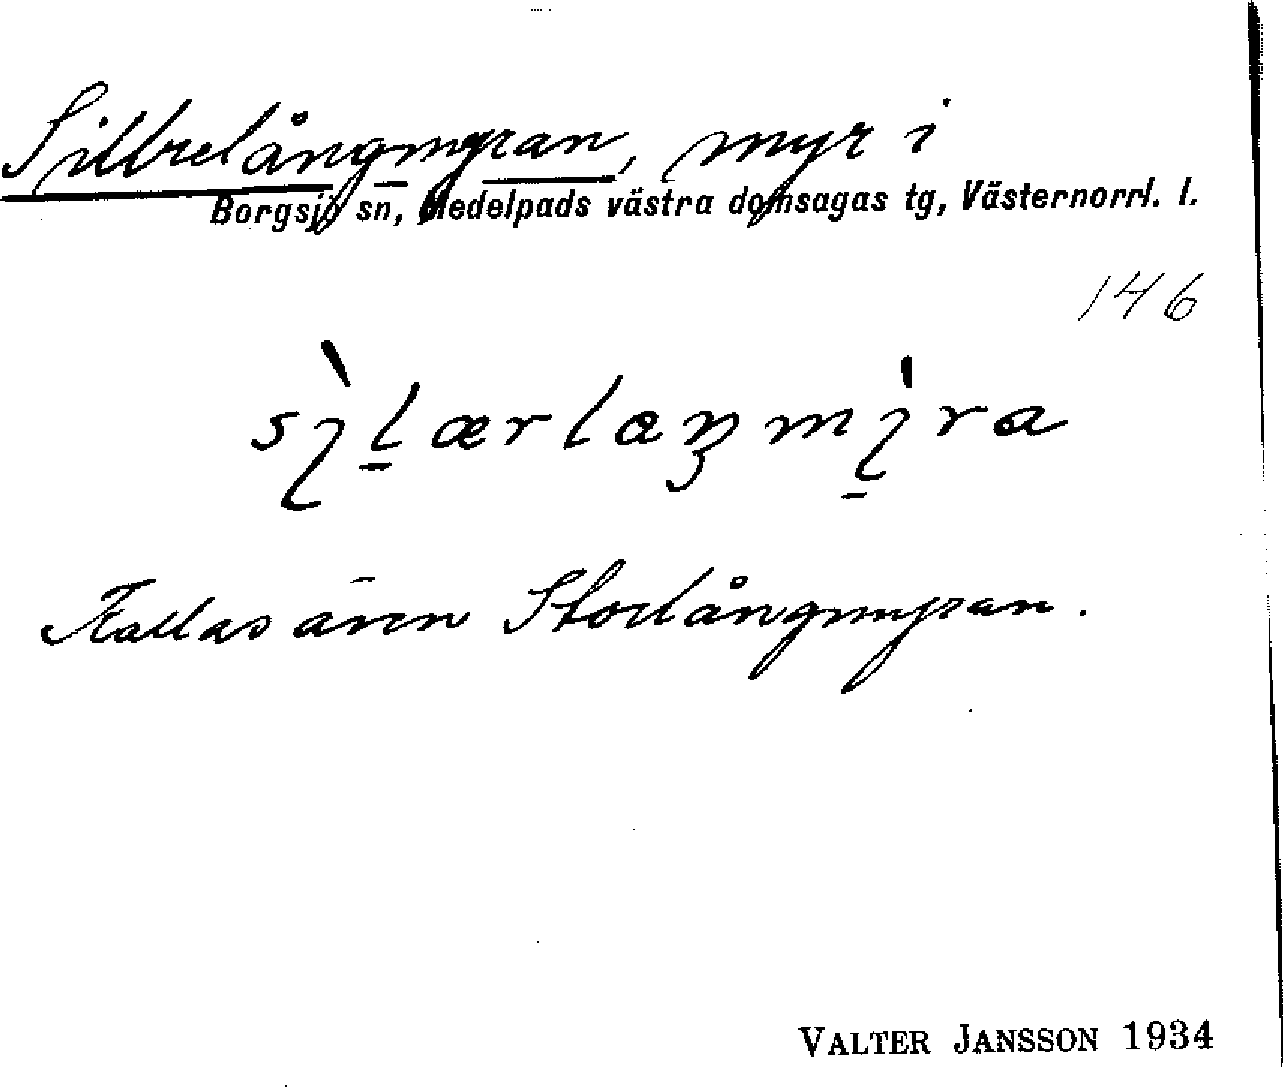 Sillrelångmyran, myr i
Borgsjö sn, Medelpads västra domsagas tg, Västernorrl. l.
146
Kallas även Storlångmyran.
VALTER JANSSON 1934